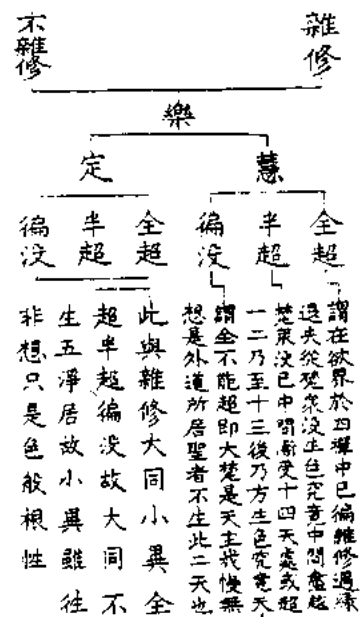 雜修
不雜修
樂
慧
定
全超
半超
徧没
全超
半超
徧没
謂在欲界於四禪中已徧雜修遇緣
退失從梵衆没生色究竟中間盡超
梵衆没已中間漸受十四天處或超
一二乃至十三後乃方生色究竟天
謂全不能超即大梵是天主我慢無
想是外道所居聖者不生此二天也
此與雜修大同小異全
超半超徧没故大同不
生五淨居故小異雖往
非想只是色般根性